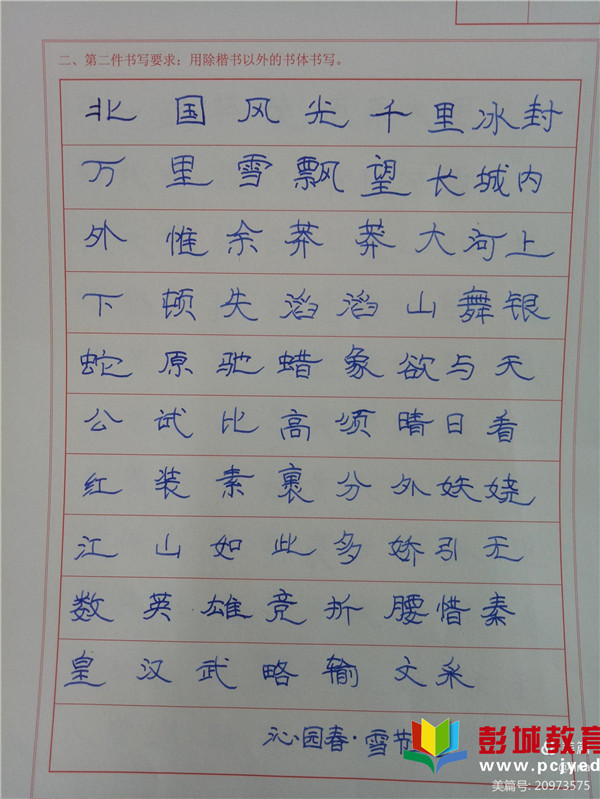 二、第二件书写要求：用除楷书以外的书体书写。
北国风光千里冰封
万里雪飘望长城内
外惟余莽莽大河上
下顿失滔滔山舞银
蛇原驰蜡象欲与天
公试比高须晴日看
红装素裹分外妖娆
江山如此多娇引无
数英雄竞折腰惜秦
皇汉武略输文采
沁园春·雪节
彭城教育
www.pcjyedu
美篇号: 20973575